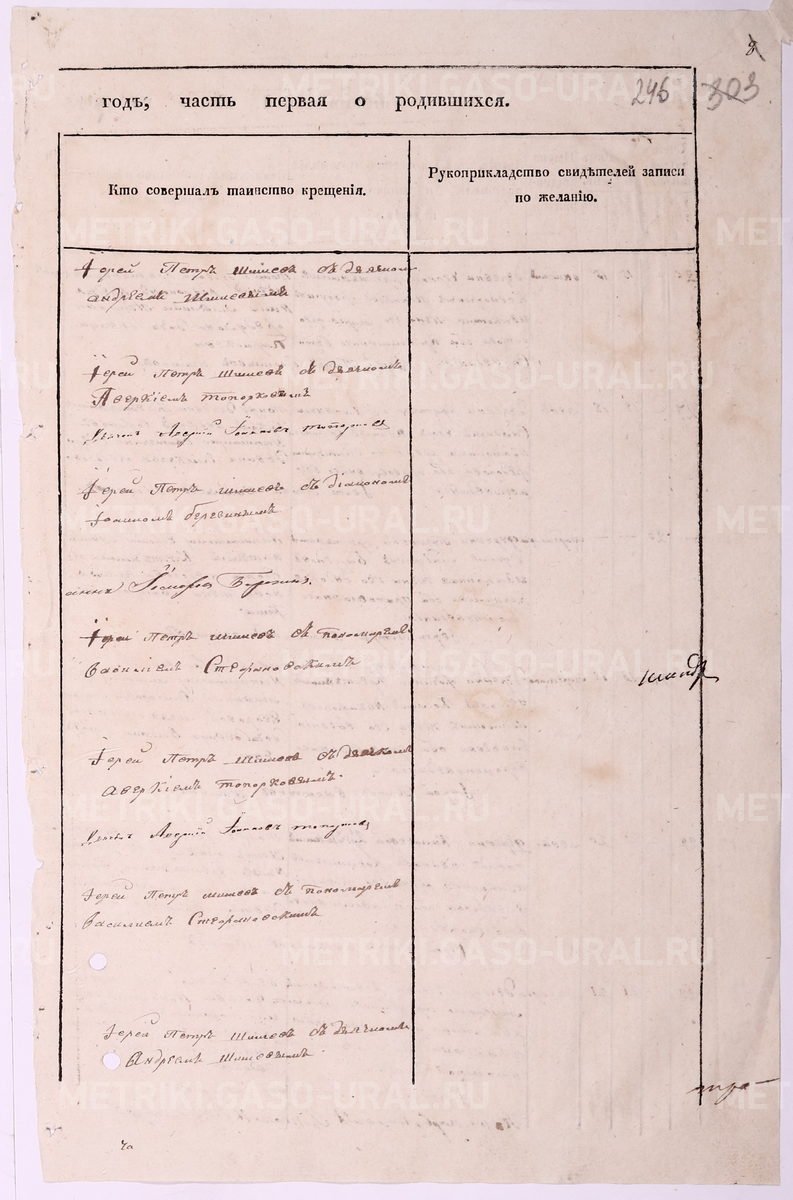 годъ, часть первая о родившихся.
246 303
Кто совершалъ таинство крещенія.
Рукоприкладство свидѣтелей записи по желанію.
Іерей Петръ Шишевъ съ дьячкомъ
Андреемъ Шишевымъ
Іерей Петръ Шишевъ съ дьячкомъ
Аверкіемъ Топорковымъ
Аверкій Топорковъ
Іерей Петръ Шишевъ съ діакономъ
Іоанномъ Березинымъ
Березинъ.
Іерей Петръ Шишевъ съ пономаремъ
Василіемъ Стефановскимъ
Іерей Петръ Шишевъ съ дьячкомъ
Аверкіемъ Топорковымъ.
Іерей Петръ Шишевъ съ пономаремъ
Василіемъ Стефановскимъ
Іерей Петръ Шишевъ съ дьячкомъ
Андреемъ Шишевымъ
METRIKI.GASO-URAL.RU